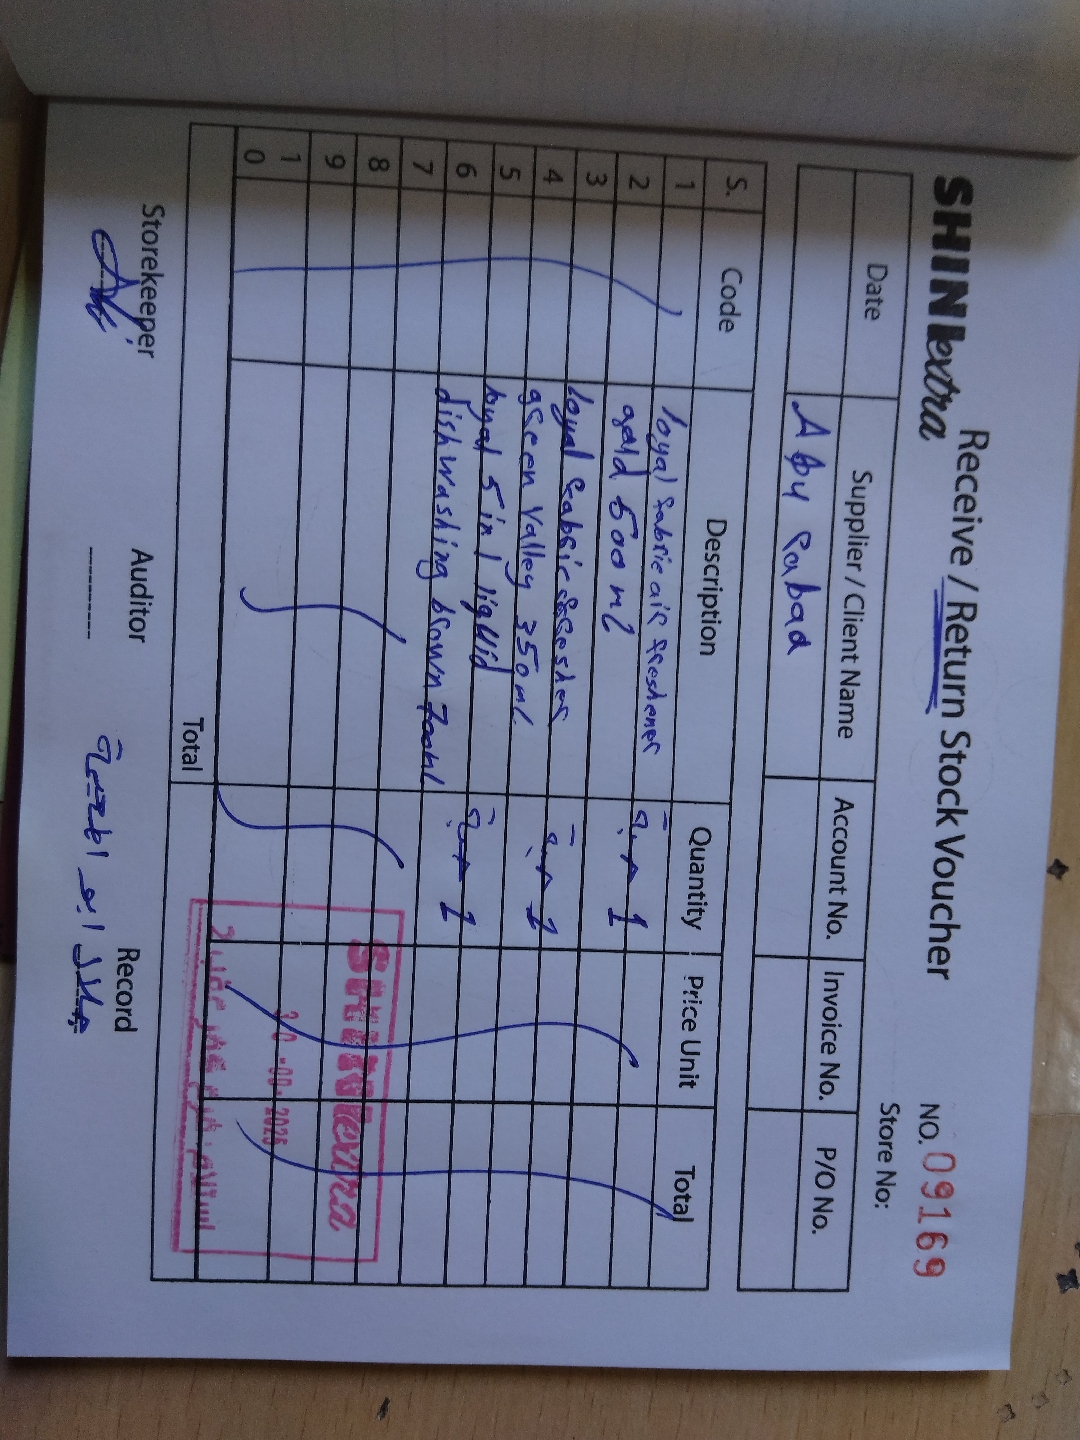 Receive / Return Stock Voucher
SHINextra
NO. 09169
Store No:
Date Supplier / Client Name Account No. Invoice No. P/O No.
Abu
S. Code Description Quantity Price Unit Total
1 loyal fabric air freshener
2 gold 500 ml 1
3 loyal fabric freshener
4 green Valley 350 ml 1
5 loyal 5 in 1 liquid
6 dishwashing brown 700ml 1
7
8
9
1
0
SHINextra
2025
Total
Storekeeper Auditor Record